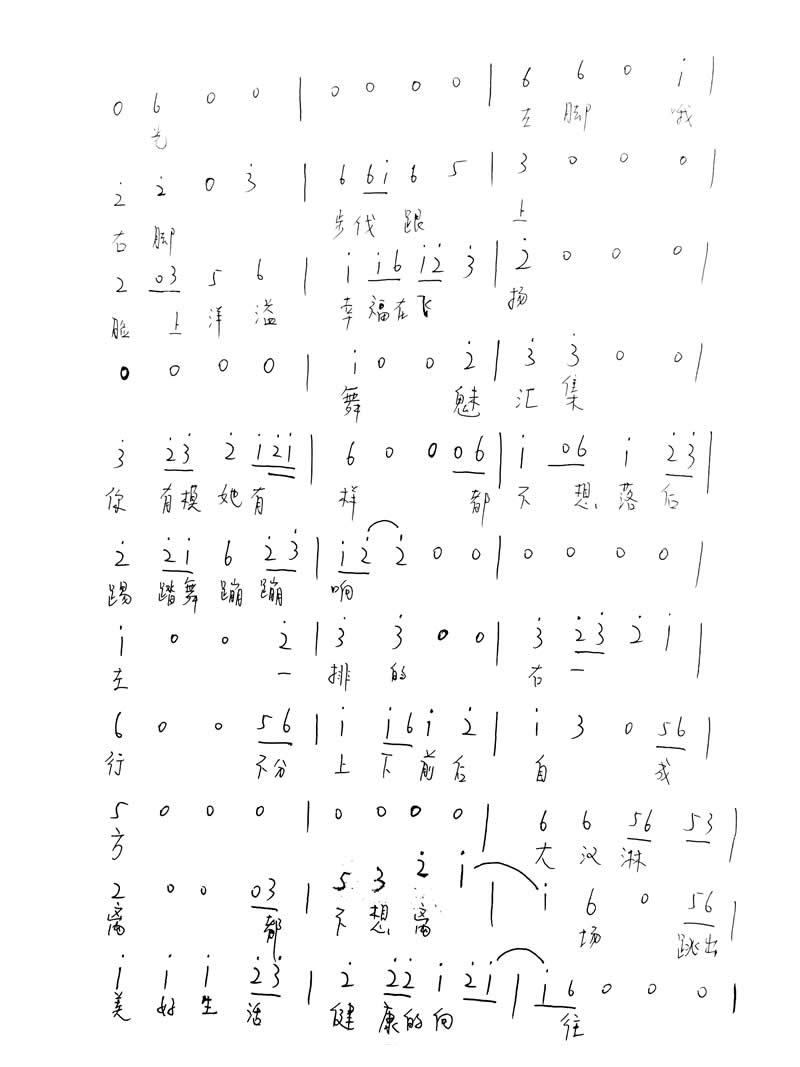 0 6 0 0 | 0 0 0 0 | 6 6 0 i |
先 左 脚 哦
2̇ 2̇ 0 3̇ | 6 6i 6 5 | 3 0 0 0 |
右 脚 步 伐 跟 上
2 03 5 6 | i i6 i2̇ 3̇ | 2̇ 0 0 0 |
脸 上 洋 溢 幸 福 在 飞 扬
0 0 0 0 | i 0 0 2̇ | 3̇ 3̇ 0 0 |
舞 魅 汇 集
3̇ 2̇3̇ 2̇ i2̇i | 6 0 0 06 | i 06 i 2̇3̇ |
你 有模 她 有 样 都 不 想 落 后
2̇ 2̇i 6 2̇3̇ | i2̇ 2̇ 0 0 | 0 0 0 0 |
踢 踏舞 蹦 蹦 响
i 0 0 2̇ | 3̇ 3̇ 0 0 | 3̇ 2̇3̇ 2̇ i |
左 一 排 的 右 一
6 0 0 56 | i i6 i 2̇ | i 3 0 56 |
行 不分 上 下 前 后 自 成
5 0 0 0 | 0 0 0 0 | 6 6 56 53 |
方 大 汉 淋
2 0 0 03 | 5 3 2̇ i | i 6 0 56 |
漓 都 不 想 离 场 跳出
i i i 2̇3̇ | 2̇ 2̇2̇ i 2̇i | i6 0 0 0 |
美 好 生 活 健 康的 向 往